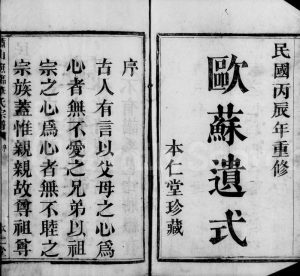 民國丙辰年重修
歐蘇遺式
本仁堂珍藏
序
古人有言以父母之心為
心者無不愛之兄弟以祖
宗之心為心者無不睦之
宗族蓋惟親親故尊祖尊